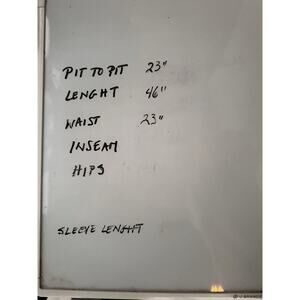 PIT TO PIT 23"
LENGHT 46"
WAIST 23"
INSEAM
HIPS
SLEEVE LENGHT